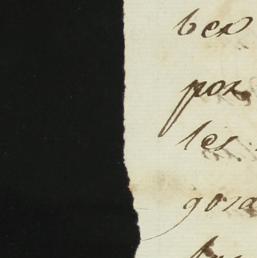 ber
por
les
gora